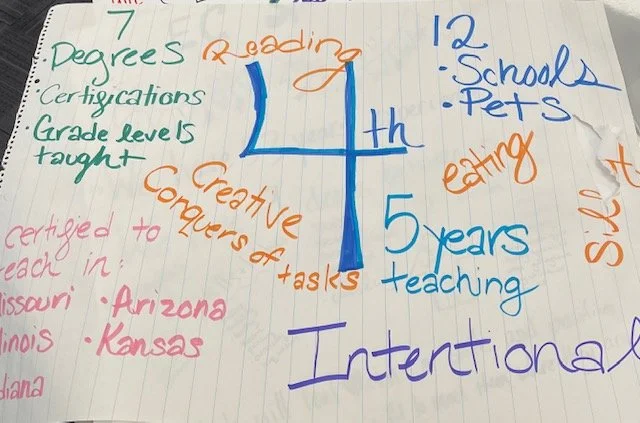 7
Degrees
Certifications
Grade levels
taught
Reading
4th
12
• Schools
• Pets
eating
Creative
Conquers of tasks
5 years
teaching
certified to
each in:
issouri
• Arizona
inois
• Kansas
diana
Intentional